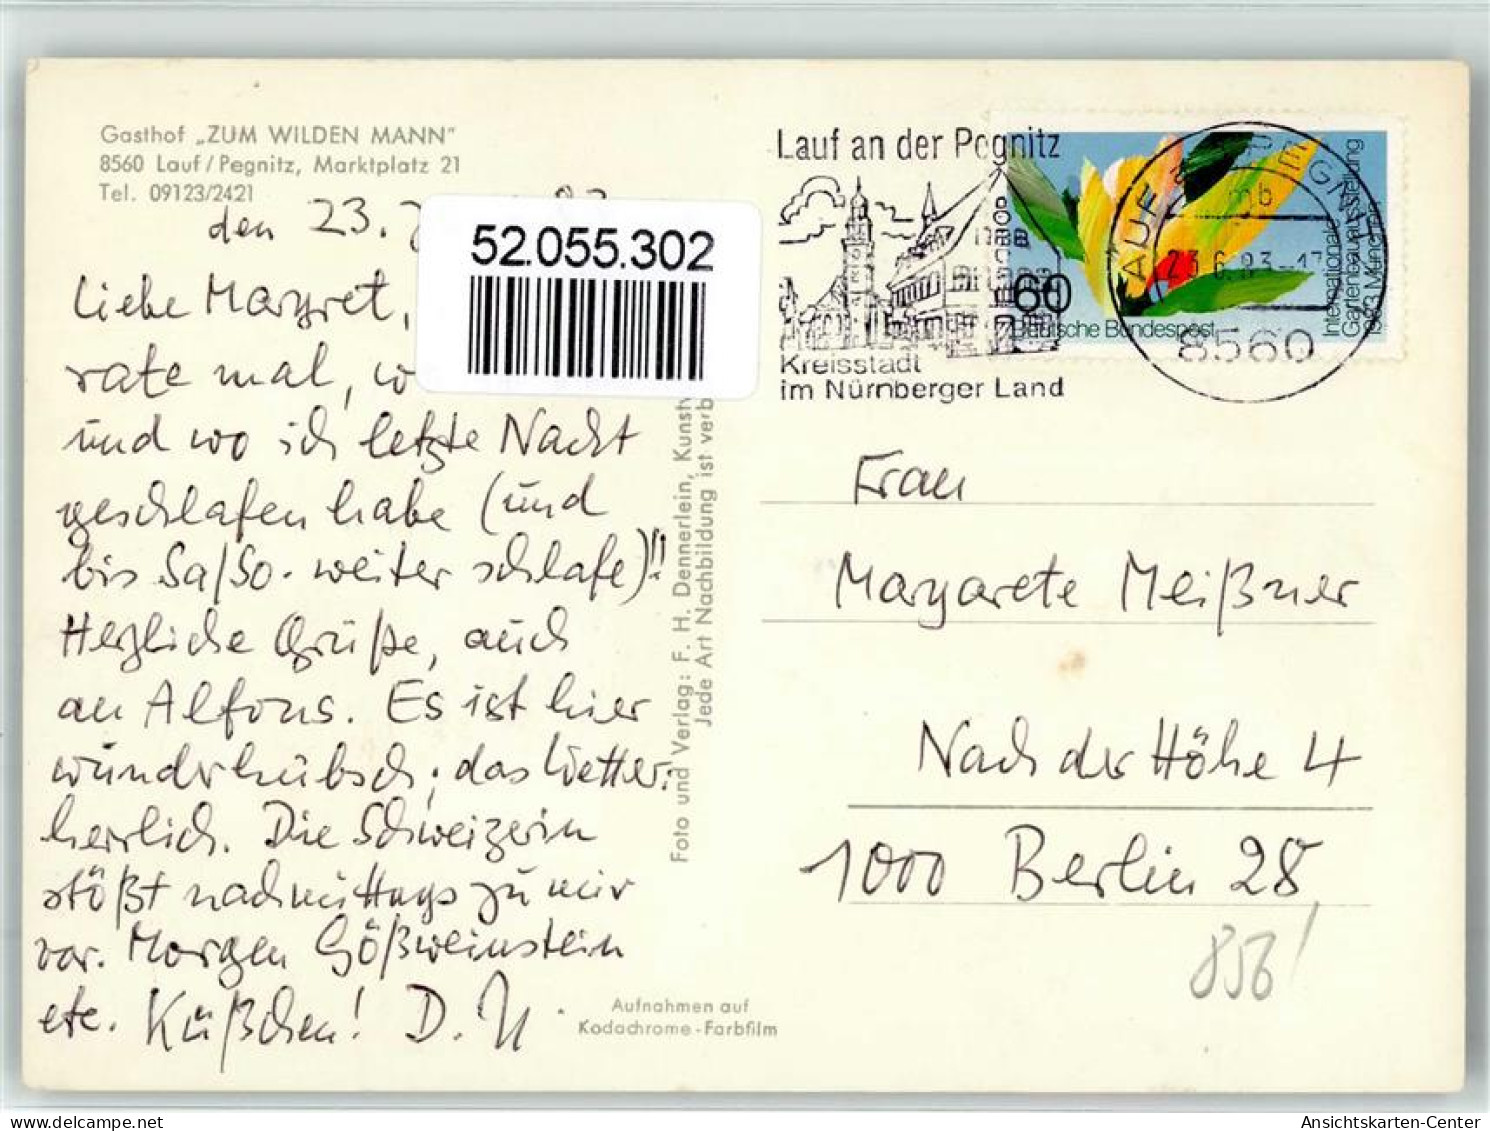 Gasthof „ZUM WILDEN MANN"
8560 Lauf/Pegnitz, Marktplatz 21
Tel. 09123/2421
den 23.
52.055.302
Liebe Margret,
rate mal,
und wo ich letzte Nacht
geschlafen habe (und
bis Sa/So. weiter schlafe)!!
Herzliche Grüße, auch
an Alfons. Es ist hier
wunderhübsch; das Wetter
herrlich. Die Schweizerin
stößt nachmittags zu mir
vor. Morgen Gößweinstein
etc. Küßchen! D. U.
Aufnahmen auf
Kodachrome-Farbfilm
Foto und Verlag: F. H. Dennerlein, Kunstv
Jede Art Nachbildung ist verb
Lauf an der Pegnitz
Kreisstadt
im Nürnberger Land
60
Deutsche Bundespost
Internationale
Gartenbauausstellung
1983 München
LAUF A D PEGNITZ 1
mb
23.6.83-17
8560
Frau
Margarete Meißner
Nach der Höhe 4
1000 Berlin 28
856!
Ansichtskarten-Center
www.delcampe.net